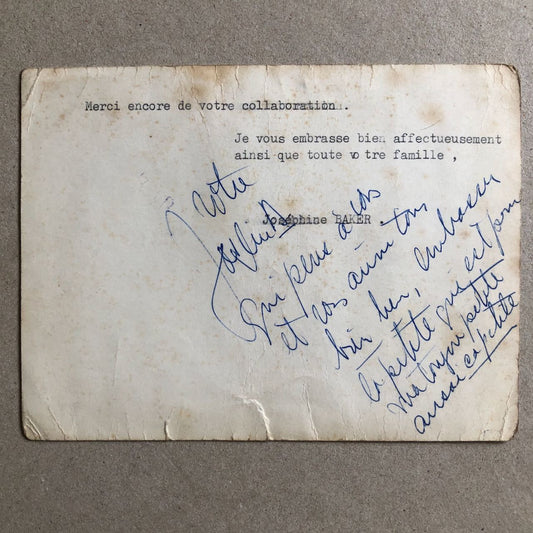 Merci encore de votre collaboration.
Je vous embrasse bien affectueusement
ainsi que toute votre famille,
Joséphine BAKER.
Votre
Joséphine
On pense à vous
et vous aimons tous
bien bien, embrasser
la petite qui est pour
ma toujours petite
aussi